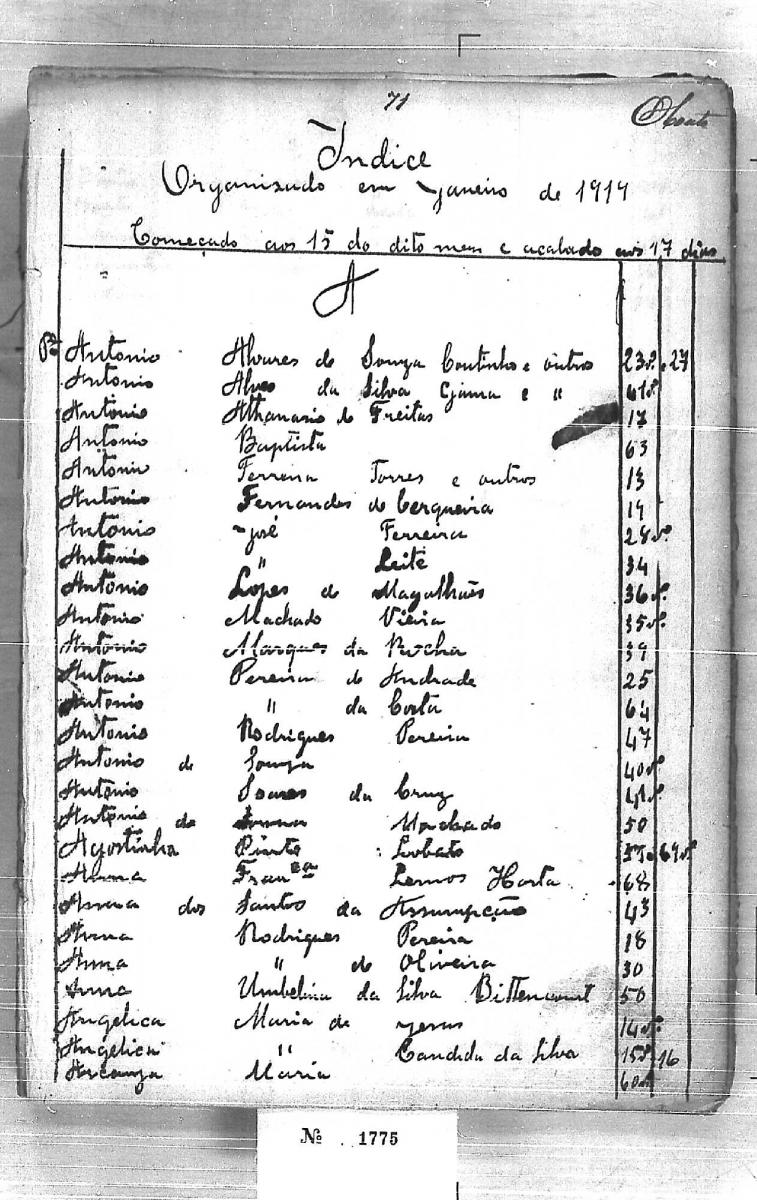 71
Indice
Organizado em Janeiro de 1914
Começado aos 15 do dito mez e acabado aos 17 dias
A
Antonio Alvares de Souza Coutinho e outros 23v. 27
Antonio Alves da Silva Gama e " 41v.
Antonio Athanasio de Freitas 17
Antonio Baptista 63
Antonio Ferreira Torres e outros 13
Antonio Fernandes de Cerqueira 14
Antonio José Ferreira 28v.
Antonio " Leite 34
Antonio Lopes de Magalhães 36v.
Antonio Machado Vieira 35v.
Antonio Marques da Rocha 39
Antonio Pereira de Andrade 25
Antonio " da Costa 64
Antonio Rodrigues Pereira 47
Antonio de Souza 40v.
Antonio Soares da Cruz 41v.
Antonio de Machado 50
Agostinha Pinto Lobato 69v.
Anna Fran.ca Lemos Horta 68
Anna dos Santos da Assumpção 43
Anna Rodrigues Pereira 18
Anna " de Oliveira 30
Anna Umbelina da Silva Bittencourt 50
Angelica Maria de Jesus 14v.
Angelica " Candida da Silva 15v. 16
Arcanja Maria 60v.
Nº 1775